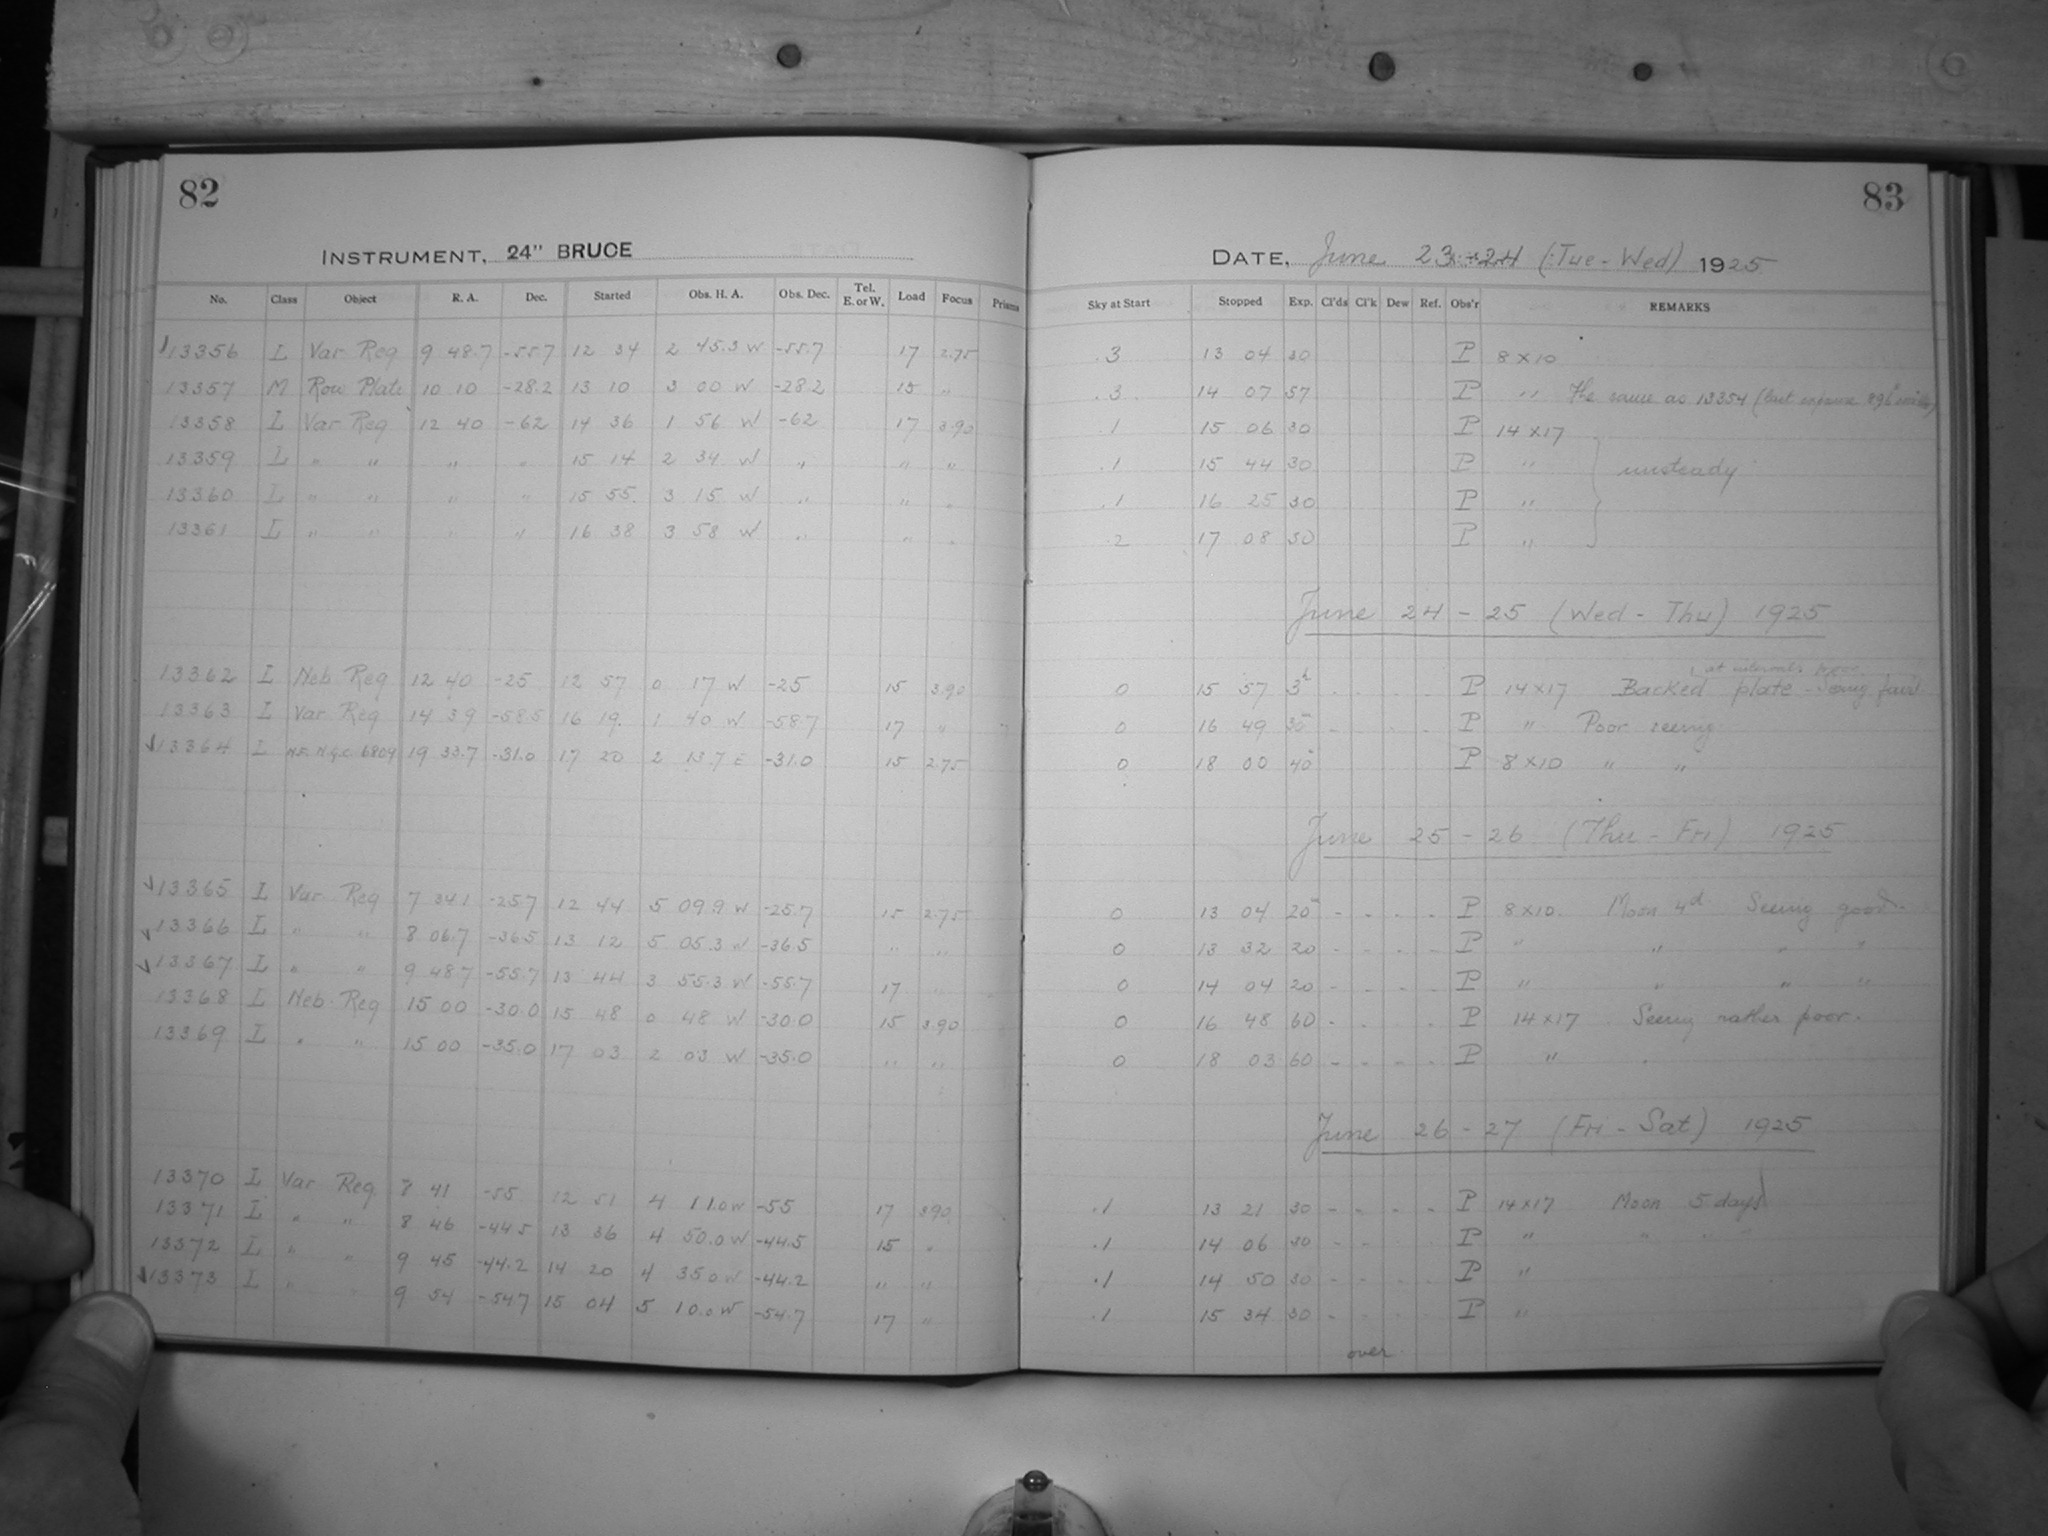 82
INSTRUMENT, 24" BRUCE
No. Class Object R. A. Dec. Started Obs. H. A. Obs. Dec. Tel. E. or W. Load Focus Prisms
13356 L Var Reg 9 48.7 -55.7 12 34 2 45.3 W -55.7 17 2.75
13357 M Rou Plate 10 10 -28.2 13 10 3 00 W -28.2 15 "
13358 L Var Reg 12 40 -62 14 36 1 56 W -62 17 3.90
13359 L " " " " 15 14 2 34 W " " "
13360 L " " " " 15 55 3 15 W " " "
13361 L " " " " 16 38 3 58 W " " "
13362 L Neb Reg 12 40 -25 12 57 0 17 W -25 15 3.90
13363 L Var Reg 14 39 -58.5 16 19 1 40 W -58.7 17 "
13364 L N.F. N.G.C 6809 19 33.7 -31.0 17 20 2 13.7 E -31.0 15 2.75
13365 L Var Reg 7 34.1 -25.7 12 44 5 09.9 W -25.7 15 2.75
13366 L " " 8 06.7 -36.5 13 12 5 05.3 W -36.5 " "
13367 L " " 9 48.7 -55.7 13 44 3 55.3 W -55.7 17 "
13368 L Neb. Reg 15 00 -30.0 15 48 0 48 W -30.0 15 3.90
13369 L " " 15 00 -35.0 17 03 2 03 W -35.0 " "
13370 L Var Reg 8 41 -55 12 51 4 11.0 W -55 17 3.90
13371 L " " 8 46 -44.5 13 36 4 50.0 W -44.5 15 "
13372 L " " 9 45 -44.2 14 20 4 35.0 W -44.2 " "
13373 L " " 9 54 -54.7 15 04 5 10.0 W -54.7 17 "
83
DATE, June 23-24 (Tue - Wed) 1925
Sky at Start Stopped Exp. Cl'ds Cl'k Dew Ref. Obs'r REMARKS
.3 13 04 30 P 8 x 10
.3 14 07 57 P " The same as 13354 (but exposure
.1 15 06 30 P 14 x 17
.1 15 44 30 P " unsteady
.1 16 25 30 P "
.2 17 08 30 P "
June 24 - 25 (Wed - Thu) 1925
at intervals
0 15 57 3h P 14 x 17 Backed plate - Seeing fair
0 16 49 30 P " Poor seeing
0 18 00 40 P 8 x 10 " "
June 25 - 26 (Thu - Fri) 1925
0 13 04 20m - - - - P 8 x 10. Moon 4d Seeing good.
0 13 32 20 - - - - P " " " "
0 14 04 20 - - - - P " " " "
0 16 48 60 - - - - P 14 x 17 Seeing rather poor.
0 18 03 60 - - - - P "
June 26 - 27 (Fri - Sat) 1925
.1 13 21 30 - - - - P 14 x 17 Moon 5 days
.1 14 06 30 - - - - P " " " "
.1 14 50 30 - - - - P "
.1 15 34 30 - - - - P "
over